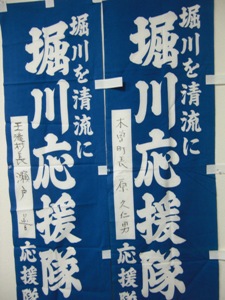 堀川を清流に
堀川応援隊
木曽町長 原久仁男
応援隊
堀川を清流に
堀川応援隊
王滝村長 瀬戸
応援隊